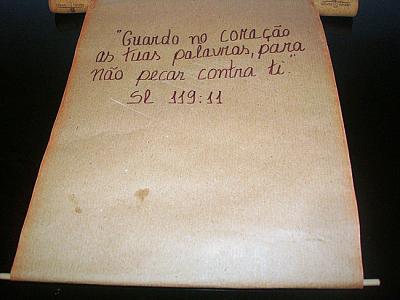 "Guardo no coração
as tuas palavras, para
não pecar contra ti."
Sl 119:11